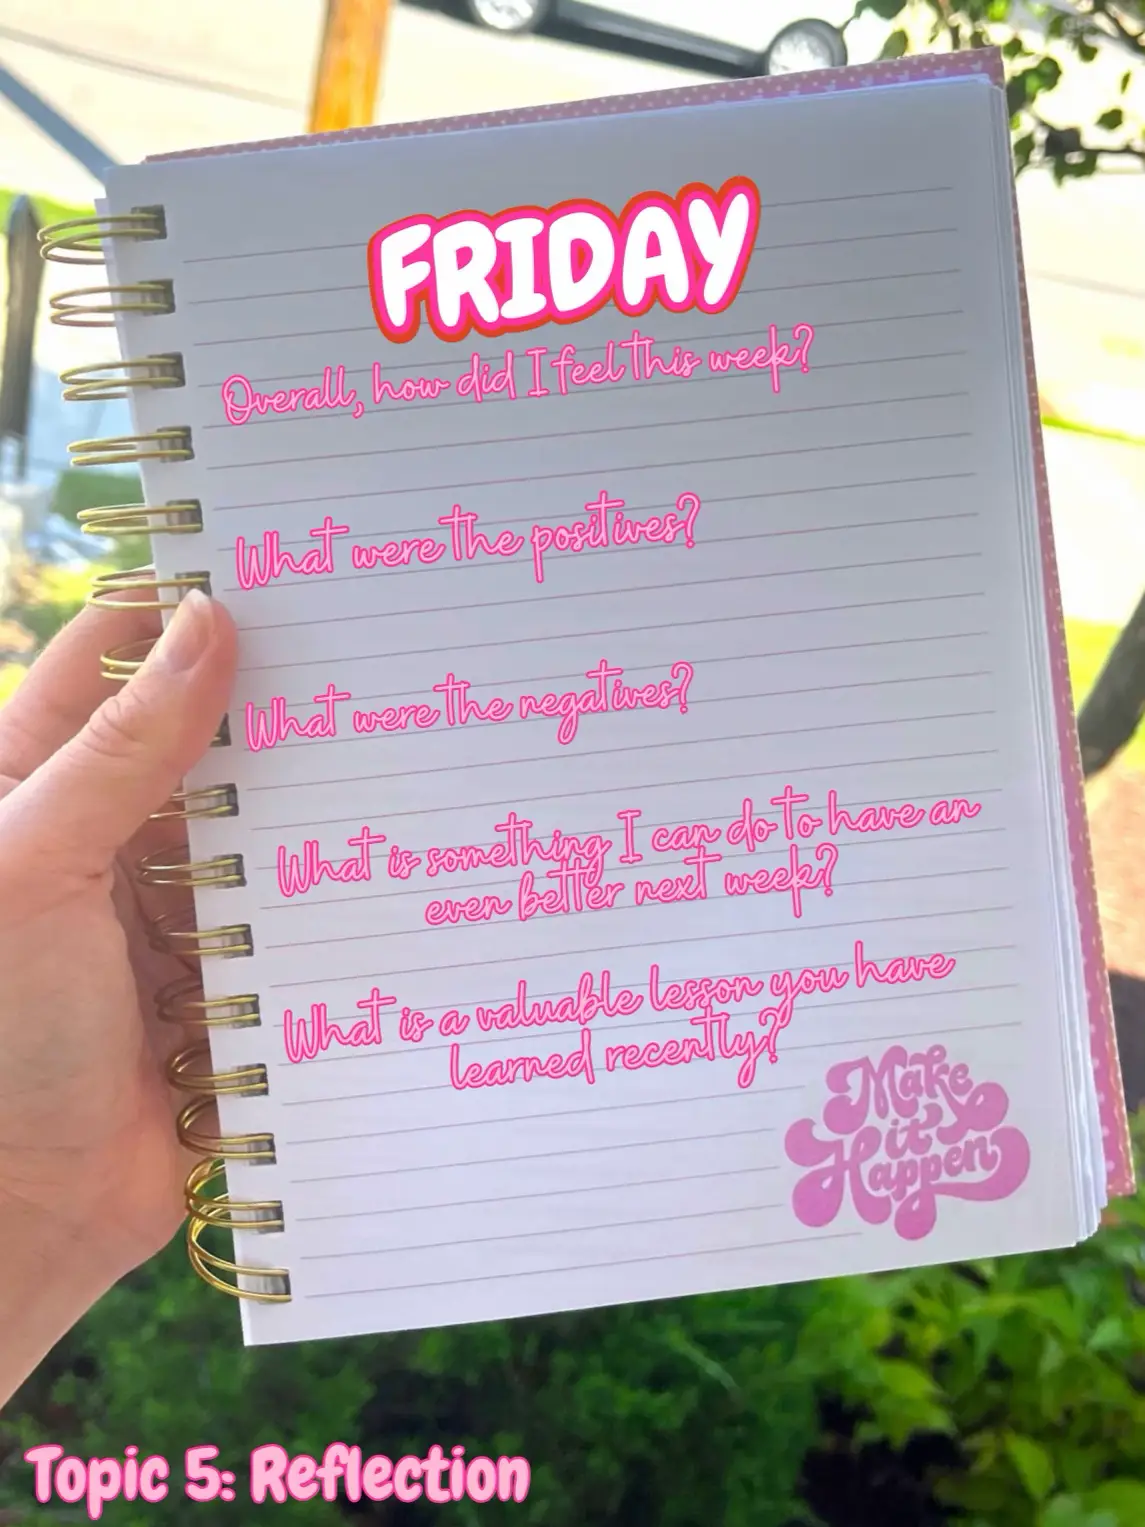 FRIDAY
Overall, how did I feel this week?
What were the positives?
What were the negatives?
What is something I can do to have an
even better next week?
What is a valuable lesson you have
learned recently?
Make
it
Happen
Topic 5: Reflection